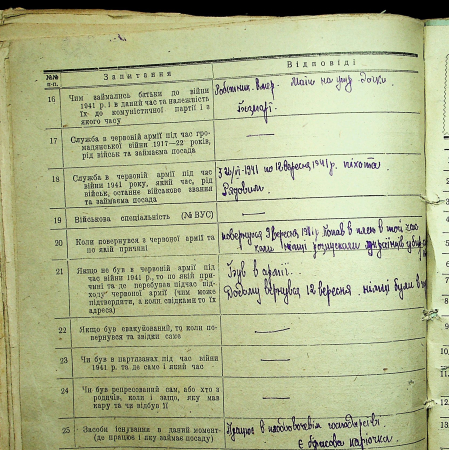 №№ п-п.
Запитання
Відповіді
16
Чим займались батьки до війни
1941 р. і в даний час та належність
їх до комуністичної партії і з
якого часу
Робітник. Вмер. Мати на
17
Служба в червоній армії під час гро-
мадянської війни 1917—22 років,
рід військ та займаєма посада
—
18
Служба в червоній армії під час
війни 1941 року, який час, рід
військ, останнє військове звання
та займаєма посада
1941 по 12 вересня 1941 р. піхота
Рядовим.
19
Військова спеціальність (№ ВУС)
—
20
Коли повернувся з червоної армії та
по якій причині
повернувся вересня попав в плен в той час
коли німці розпускали українців
21
Якщо не був в червоній армії під
час війни 1941 р., то по якій при-
чині та де перебував підчас відхо-
ду червоної армії (чим може
підтвердити, а коли свідками то їх
адреса)
Був в армії.
Додому вернувся 12 вересня. німці були в
22
Якщо був евакуйований, то коли по-
вернувся та звідки саме
—
23
Чи був в партизанах під час війни
1941 р. та де саме і який час
—
24
Чи був репресований сам, або хто з
родичів, коли і защо, яку мав
кару та чи відбув її
—
25
Засоби існування в даний момент
(де працює і яку займає посаду)
Працює в господарстві
є картка